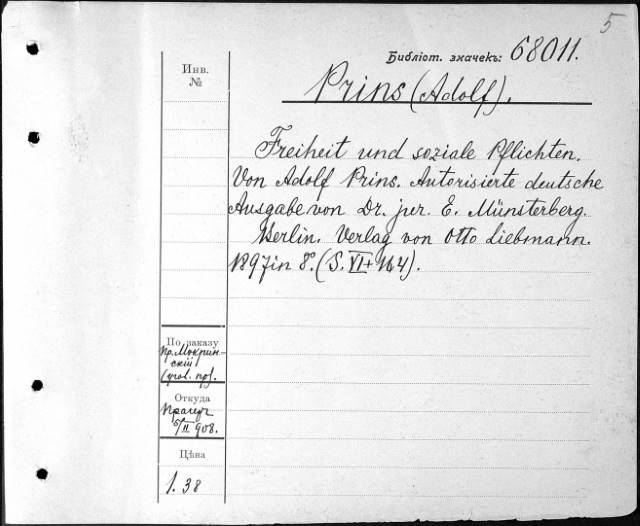 5
Библіот. значекъ: 68011.
Инв.
№
Prins (Adolf).
Freiheit und soziale Pflichten.
Von Adolf Prins. Autorisierte deutsche
Ausgabe von Dr. jur. E. Münsterberg.
Berlin. Verlag von Otto Liebmann.
1897 in 8°. (S. VI + 164).
По заказу
Пр. Мокрин-
скій
(угол. пр).
Откуда
5/II 908.
Цѣна
1.38